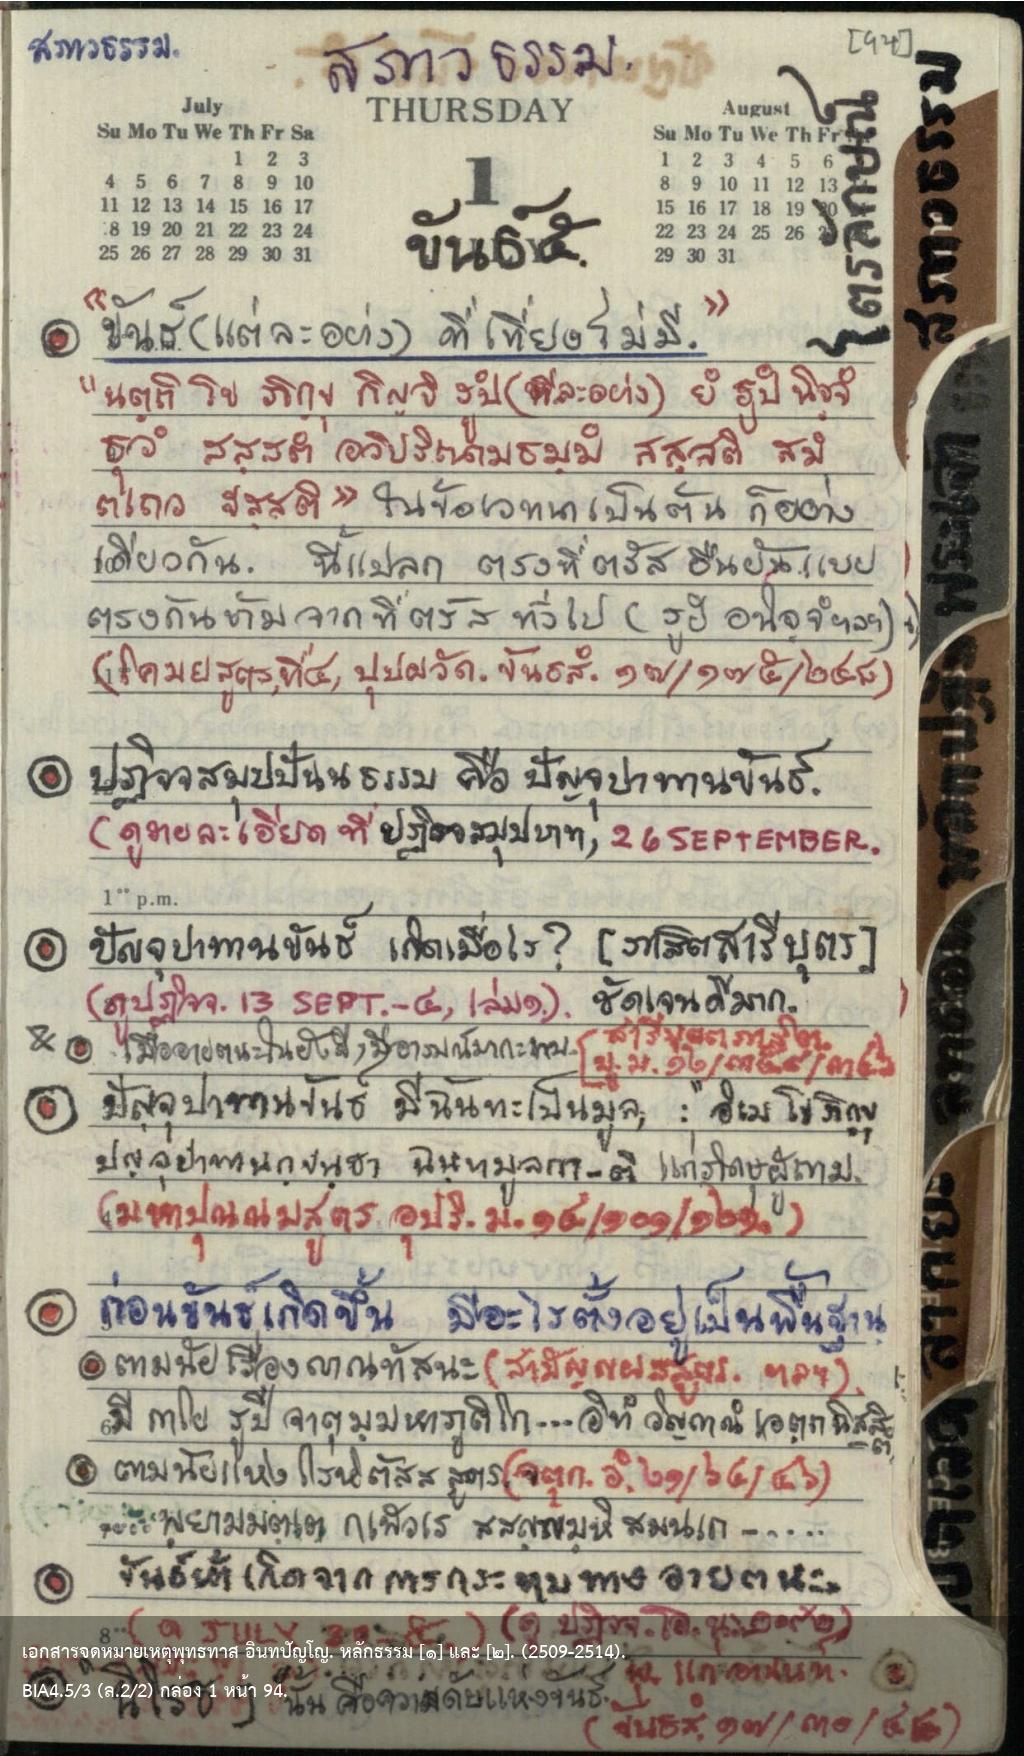 สภาวธรรม.
สภาวธรรม.
[94]
July
THURSDAY
August
Su Mo Tu We Th Fr Sa
Su Mo Tu We Th Fr
1 2 3
1 2 3 4 5 6
4 5 6 7 8 9 10
1
8 9 10 11 12 13
11 12 13 14 15 16 17
15 16 17 18 19 20
18 19 20 21 22 23 24
22 23 24 25 26
25 26 27 28 29 30 31
29 30 31
ขันธ์ ๕.
ไตรลักษณ์
สภาวธรรม
"ขันธ์ (แต่ละอย่าง) ที่เที่ยงไม่มี."
"นตฺถิ โข ภิกฺขุ กิญฺจิ รูปํ (ทีละอย่าง) ยํ รูปํ นิจฺจํ
ธุวํ สสฺสตํ อวิปริณามธมฺมํ สสฺสติ สมํ
ตเถว ฐสฺสติ" ในข้อเวทนาเป็นต้น ก็อย่าง
เดียวกัน. นี้แปลก ตรงที่ตรัส ยืนยัน แบบ
ตรงกันข้าม จากที่ตรัส ทั่วไป (รูปํ อนิจฺจํ ฯลฯ)
(โคมยสูตร,ที่๔, ปุปผวัค. ขันธสํ. ๑๗/๑๗๕/๒๔๘)
ปฏิจจสมุปปันนธรรม คือ ปัญจุปาทานขันธ์.
(ดูรายละเอียด ที่ ปฏิจจสมุปบาท, 26 SEPTEMBER.
1 p.m.
ปัญจุปาทานขันธ์ เกิดเมื่อไร? [ภาสิตสารีบุตร]
(ดูปฏิจจ. 13 SEPT.-๔, เล่ม๑.). ชัดเจนดีมาก.
เมื่ออายตนะในยังดี, มีอารมณ์มากะทบ.
สารีปุตตภาสิต
มู. ม. ๑๒/๓๕๘/๓๔๖
ปัญจุปาทานขันธ์ มีฉันทะเป็นมูล, : "อิเม โข ภิกฺขุ
ปญฺจุปาทานกฺขนฺธา ฉนฺทมูลกา-ติ แก่ภิกษุผู้ถาม.
(มหาปุณณมสูตร อุปริ. ม. ๑๔/๑๐๑/๑๒๑.)
ก่อนขันธ์เกิดขึ้น มีอะไรตั้งอยู่เป็นพื้นฐาน
ตามนัยเรื่องญาณทัสนะ (สามัญญผลสูตร. ฯลฯ)
มี กาโย รูปี จาตุมฺมหาภูติโก---อิทํ วิญฺญาณํ เอตฺถ นิสฺสิตํ
ตามนัยแห่ง โรหิตัสสสูตร (จตุก. อํ. ๒๑/๖๔/๔๖)
พฺยามมตฺเต กเฬวเร สสญฺญิมฺหิ สมนเก -.....
ขันธ์ห้า เกิดจาก การกระทบทางอายตนะ.
8
เอกสารจดหมายเหตุพุทธทาส อินทปัญโญ. หลักธรรม [๑] และ [๒]. (2509-2514).
BIA4.5/3 (ล.2/2) กล่อง 1 หน้า 94.
นั้น คือความดับแห่งขันธ์.
แก่อานนท์.